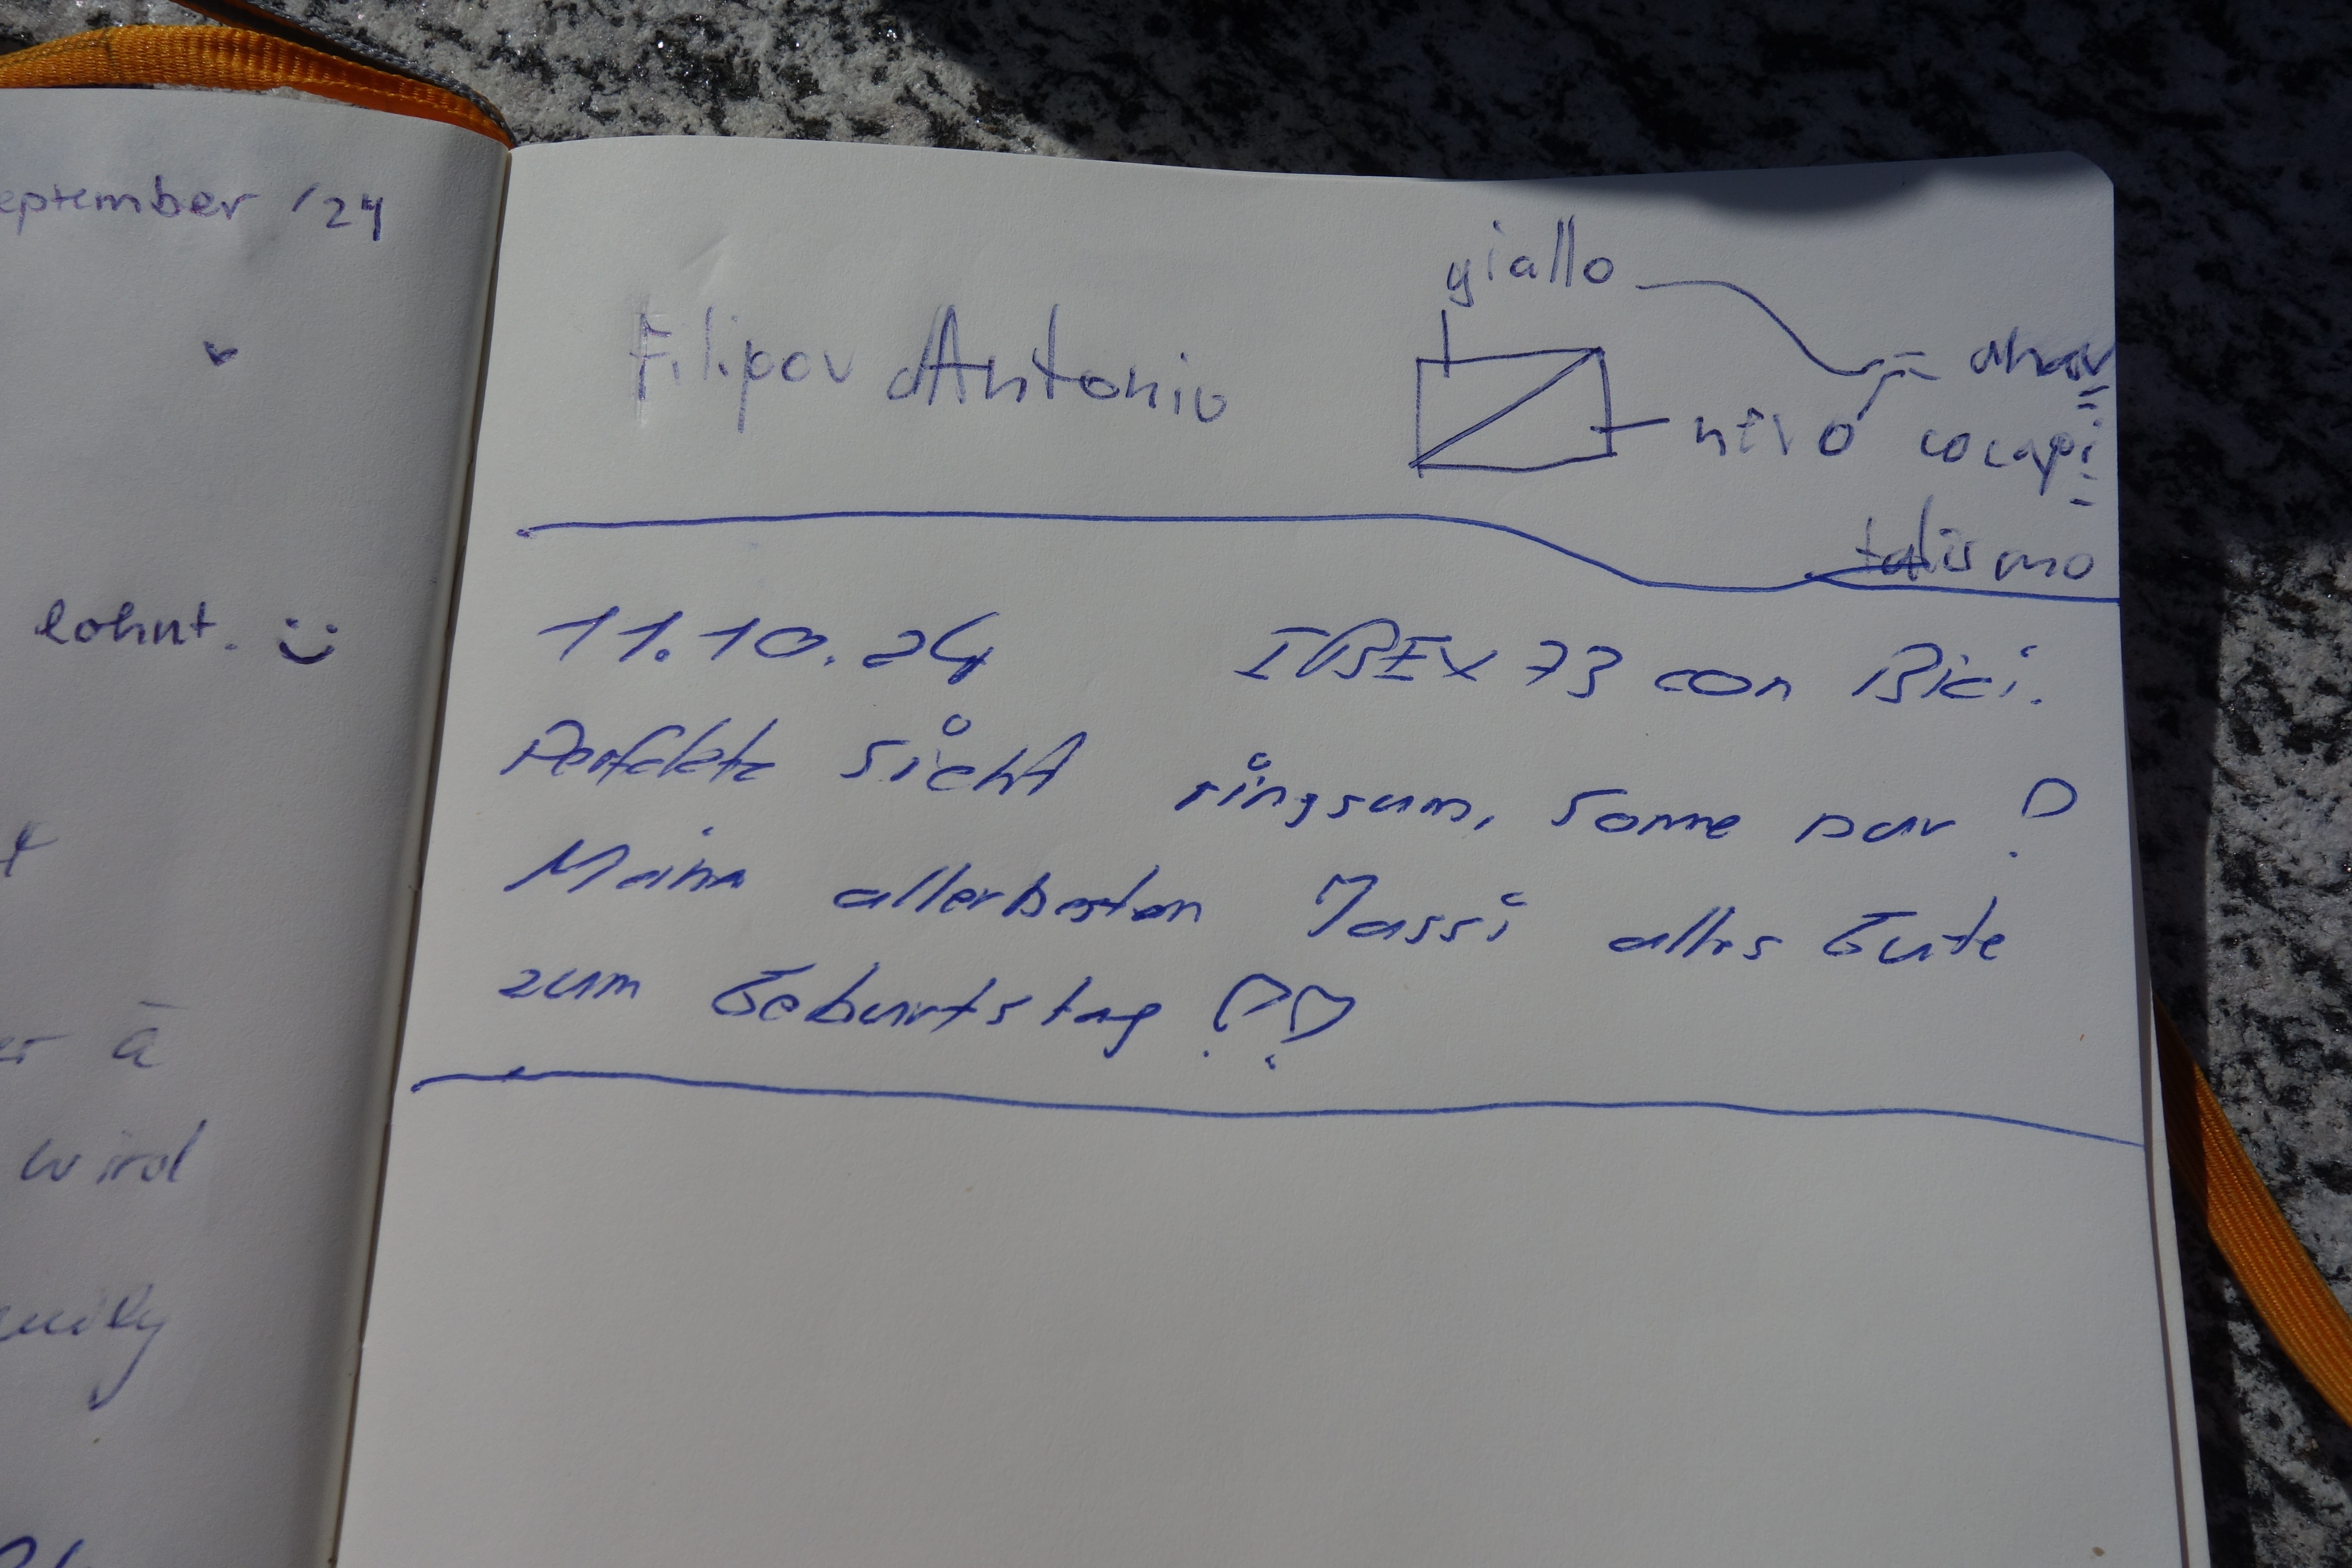 eptember '24
lohnt. :)
er à
wird
giallo
Filipov Antonio
nero
anar
cocapi
talismo
11.10.24 IBEX 73 con Bici.
Perfekte Sicht ringsum, Sonne pur!
Meiner allerbesten Jassi alles Gute
zum Geburtstag!!